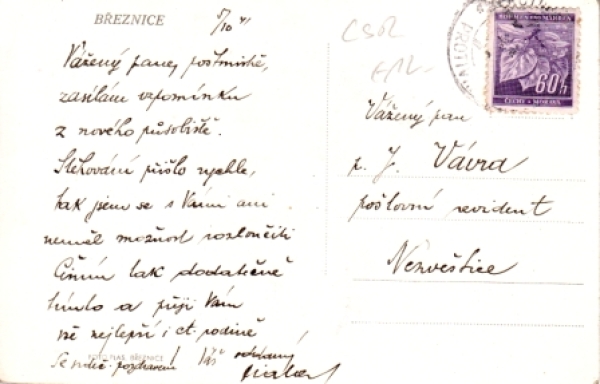 BŘEZNICE
5/10 41
Vážený pane poštmistře,
zasílám vzpomínku
z nového působiště.
Stěhování přišlo rychle,
tak jsem se s Vámi ani
neměl možnost rozloučiti
Činím tak dodatečně
tímto a přeji Vám
vše nejlepší i ct. rodině
Se srdeč. pozdravem! Váš oddaný
FOTO NAŠ. BŘEZNICE
ČSOL
BÖHMEN UND MÄHREN
60h
ČECHY A MORAVA
Vážený pan
p. J. Vávra
poštovní revident
Nezvěstice